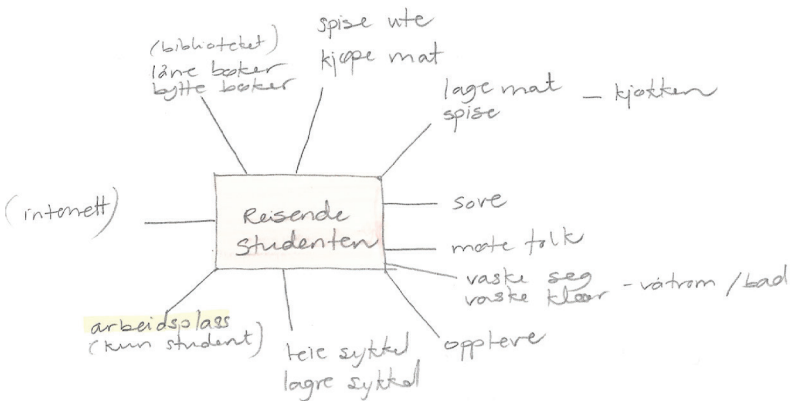 (biblioteket)
låne bøker
bytte bøker
spise ute
kjøpe mat
lage mat – kjøkken
spise
(internett)
Reisende
Studenten
sove
møte folk
vaske seg
vaske klær - våtrom / bad
arbeidsplass
(kun student)
leie sykkel
lagre sykkel
oppleve